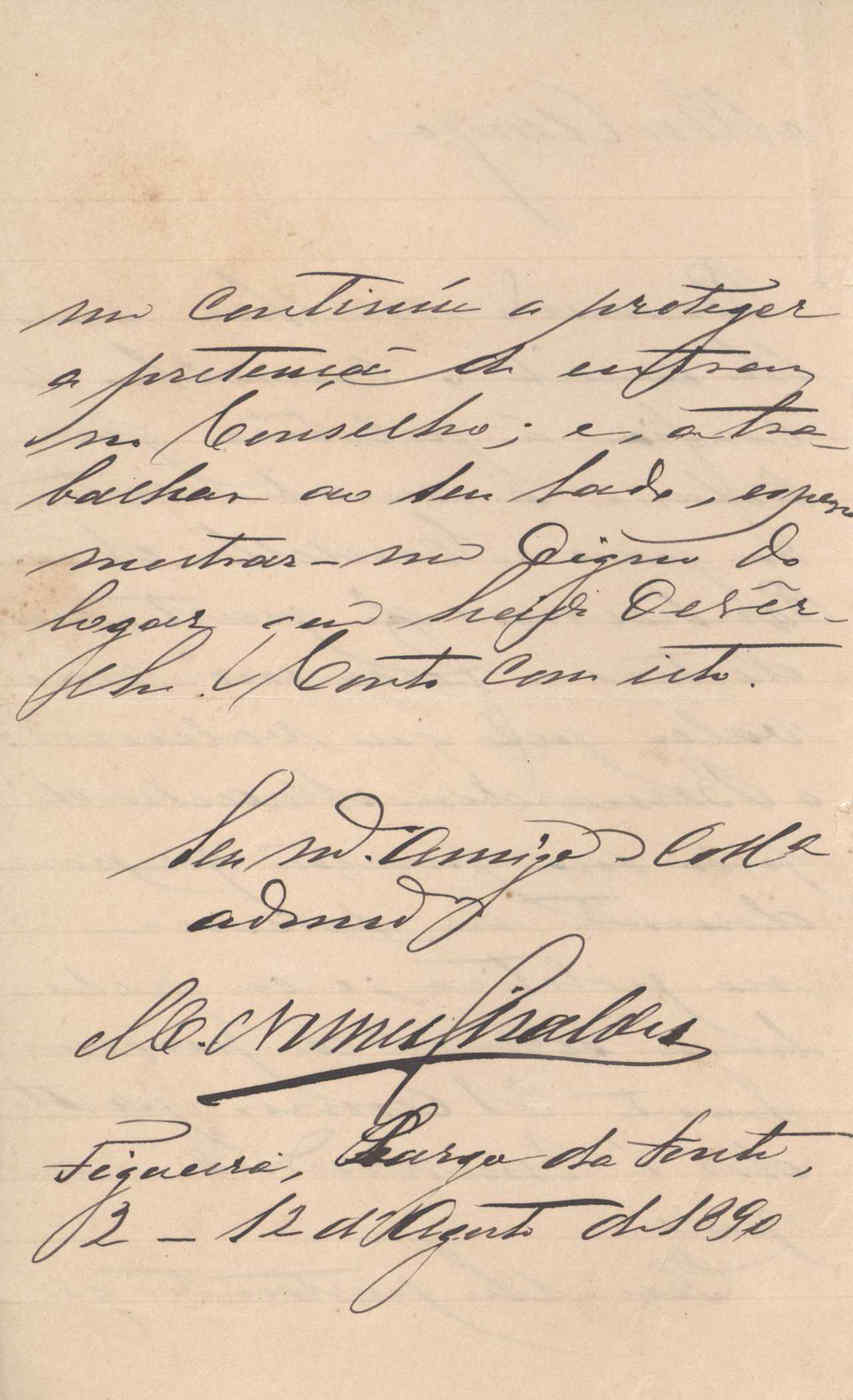 me continúe a proteger
a pretensão de entrar
no Conselho; e, a tra-
balhar ao seu lado, espero
mostrar-me digno do
logar que haja de vêr-
lhe. Conto com isto.
Seu m.º amigo e coll.ª
admdr
M. Nunes Giraldes
Figueira, Largo da Fonte,
2 - 12 d'Agosto de 1890